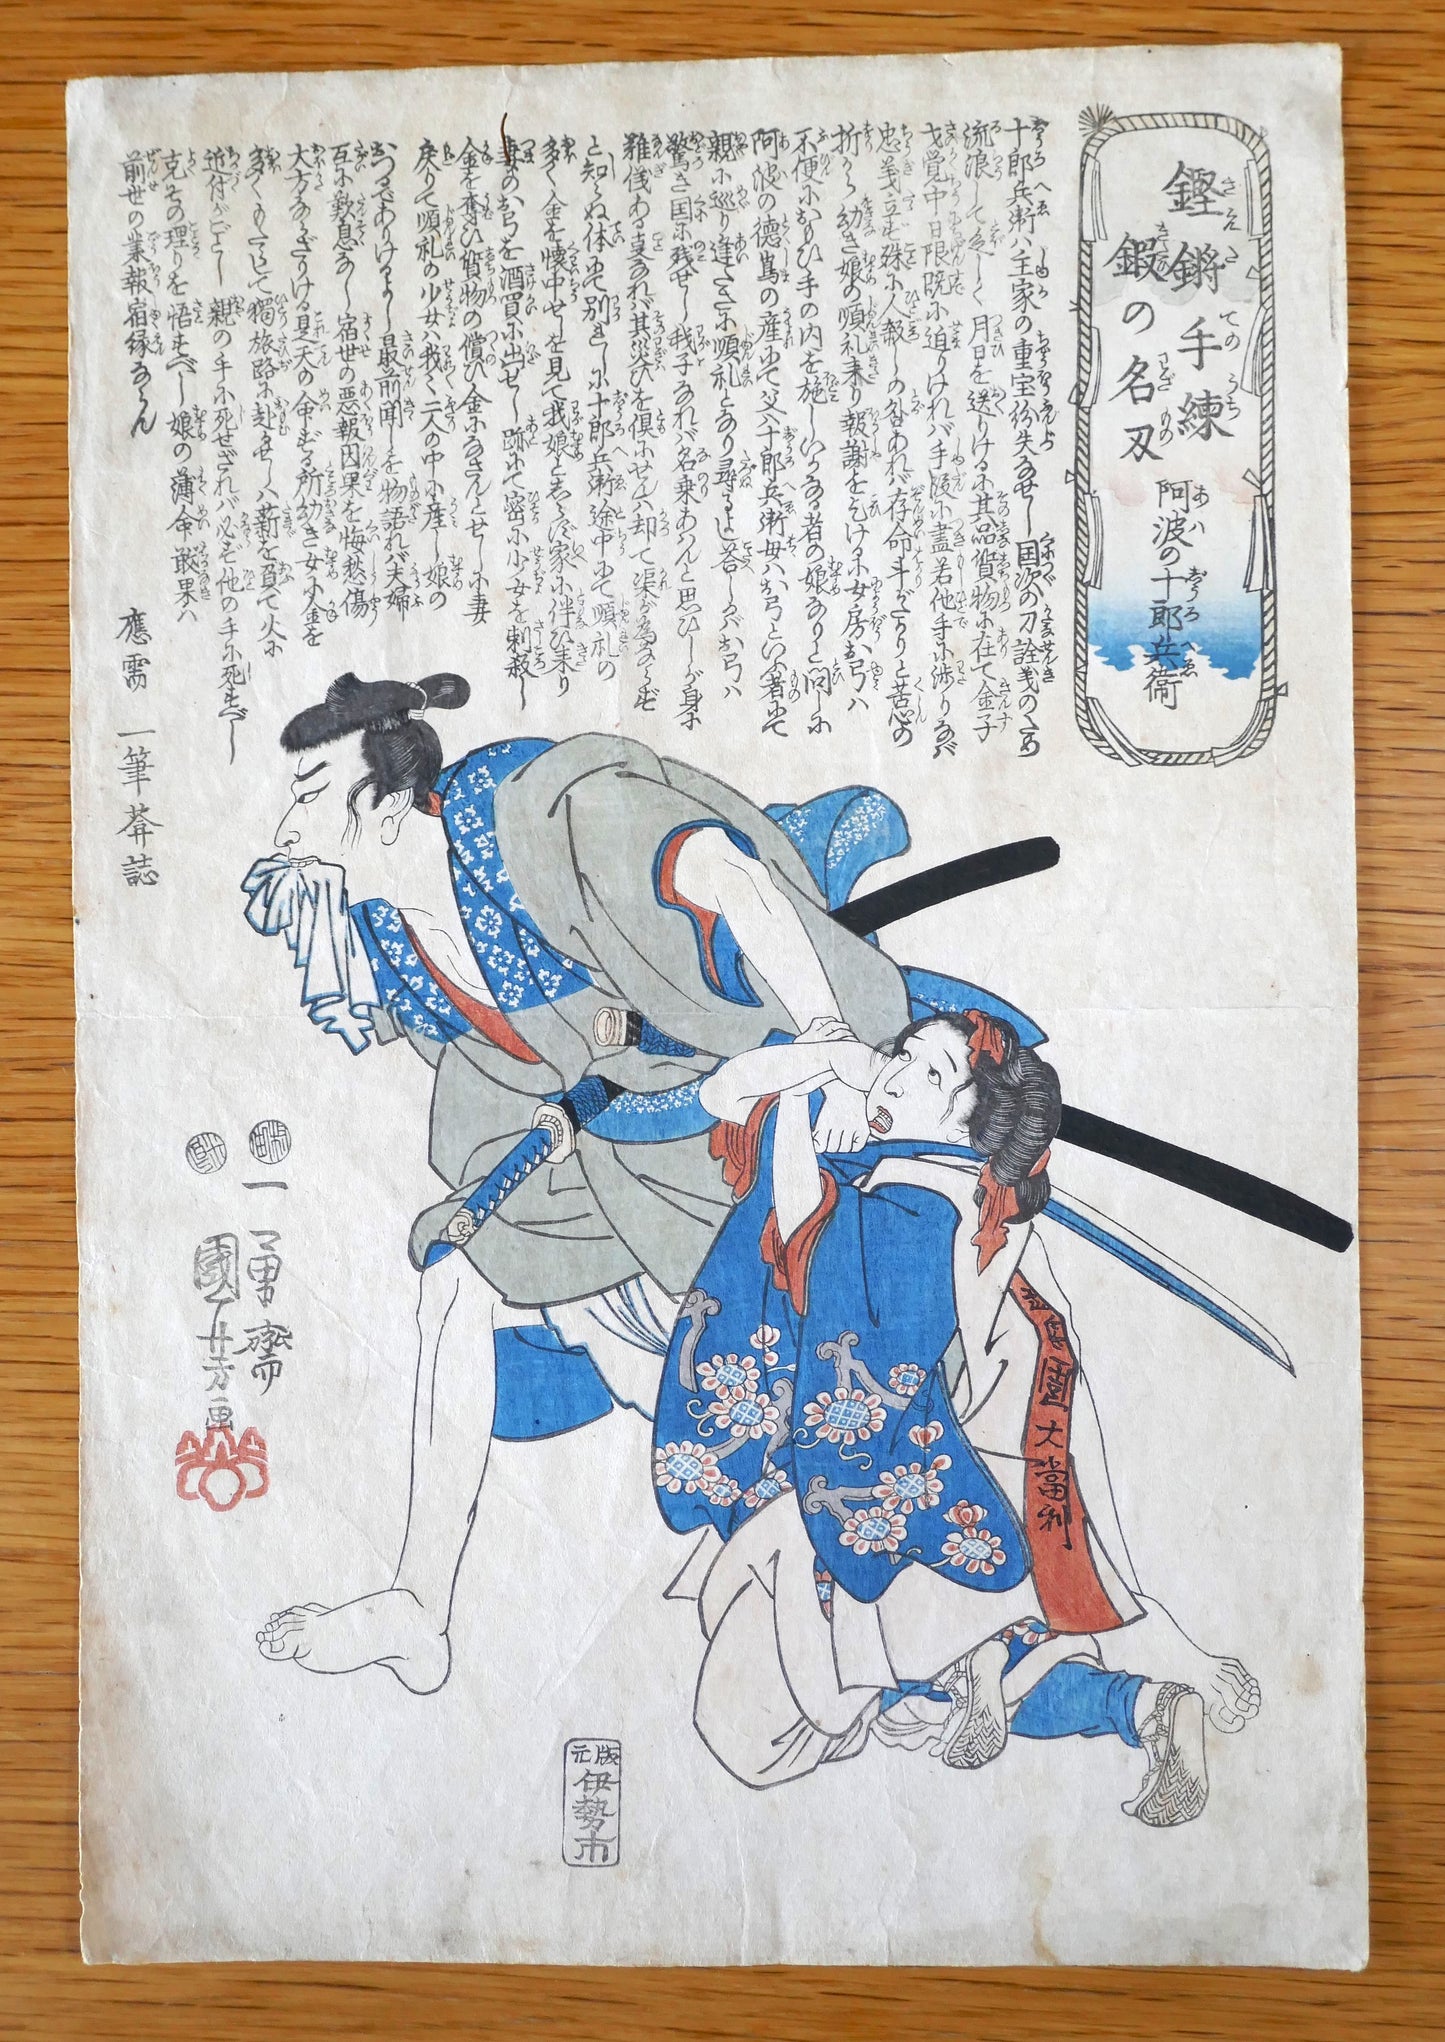 鏗鏘手練
鍜の名刃
阿波の十郎兵衞
十郎兵衞ハ主家の重宝紛失なせし国次の刀詮義のため
流浪して
月日を送りける小其品質物小在て金子
才覚中日限既小迫りけれバ手段小盡若他手小渉りなバ
忠義立ず殊小人殺しの咎あれバ存命斗がたりと苦心の
折から幼き娘の順礼来り報謝を乞ける小女房お弓ハ
不便小おもひ手の内を施しいかなる者の娘なりと問し小
阿波の徳島の産小て父ハ十郎兵衞母ハお弓といふ者小て
親小巡り逢たさ小順礼となり尋るよし答しかバお弓ハ
驚き国小残せし我子なれバ名乗あハんと思ひしが身小
難儀ある真なれバ其災ひを倶小せんハ却て渠が為ならず
と知らぬ体小て別れし小十郎兵衞途中小て順礼の
多く金を懐中せしを見て我娘としらず家小伴ひ来り
妻のお弓を酒買小出せし跡小て密小少女を刺殺し
金を奪ひ質物の償ひ金小なさんとせし小妻
戻りて順礼の少女ハ我々二人の中小産し娘の
おつるでありけるよし最前聞しを物語れバ夫婦
互小歎息なし宿世の悪報因果を悔愁傷
大方ならざりける是天の命ずる所幼き女小金を
多くもたらして獨旅路小赴せしハ薪を負て火小
近付がごとし親の手小死せざれバ必ず他の手小死すべし
克その理りを悟すべし娘の薄命敢果ハ
前世の業報宿縁ならん
應需
一筆菴誌
一勇齋
國芳画
國
大當利
版元
伊勢市